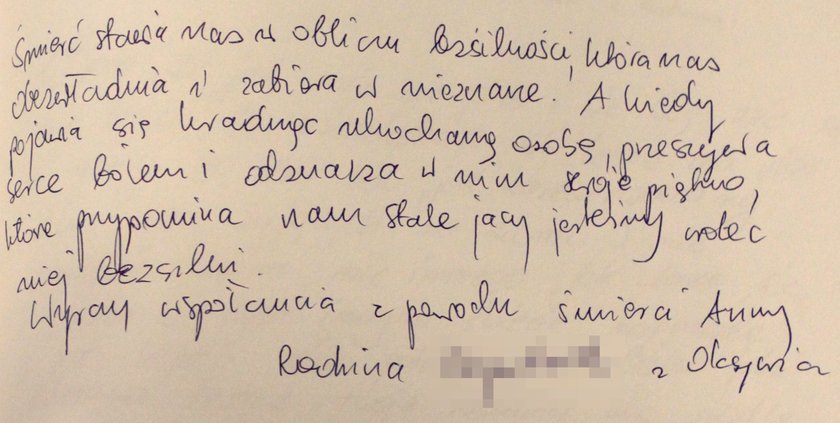 Śmierć stawia nas w obliczu bezsilności, która nas
obezwładnia i zabiera w nieznane. A kiedy
pojawia się kradnąc ukochaną osobę, przeszywa
serce bólem i odznacza w nim swoje piętno,
które przypomina nam stale jacy jesteśmy wobec
niej bezsilni.
Wyrazy współczucia z powodu śmierci Anny
Rodzina z Oksywia